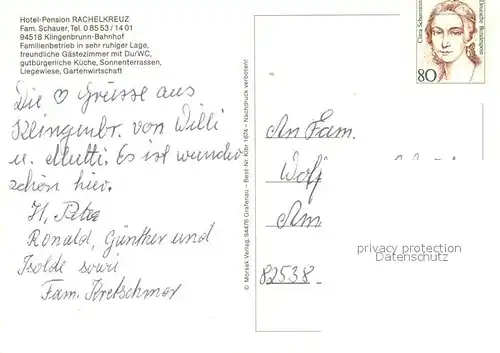 Hotel-Pension RACHELKREUZ
Fam. Schauer, Tel. 0 85 53 / 14 01
94518 Klingenbrunn-Bahnhof
Familienbetrieb in sehr ruhiger Lage,
freundliche Gästezimmer mit Du/WC,
gutbürgerliche Küche, Sonnenterrassen,
Liegewiese, Gartenwirtschaft
Die ♡ Grüsse aus
Klingenbr. von Willi
u. Mutti. Es ist wunder
schön hier.
Ronald, Günther und
Isolde sowi
Fam. Kretschmer
© Morsak Verlag, 94476 Grafenau – Best-Nr. KÜbr 1674 – Nachdruck verboten!
Clara Schumann
Deutsche Bundespost
80
An Fam.
Wolf
Am
82538
privacy protection
Datenschutz